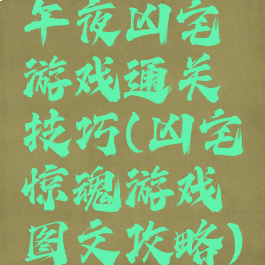 午夜凶宅
游戏通关
技巧(凶宅
惊魂游戏
图文攻略)